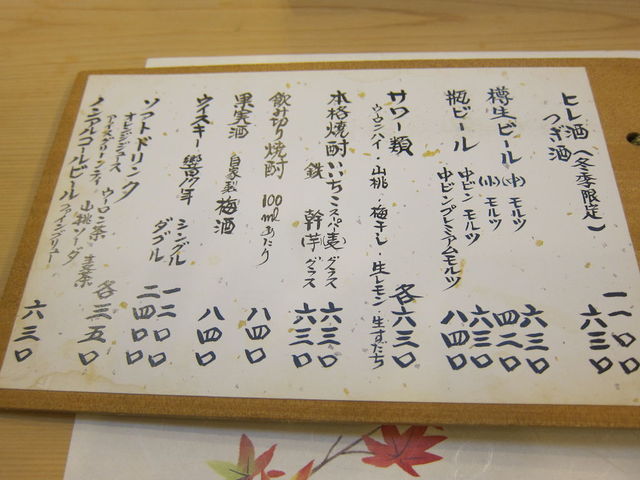 ヒレ酒(冬季限定) 一一〇〇
つぎ酒 六三〇
樽生ビール (中)モルツ 六三〇
(小)モルツ 四二〇
瓶ビール 中ビンモルツ 六三〇
中ビンプレミアムモルツ 八四〇
サワー類 各六三〇
ウーロンハイ・山桃・梅干し・生レモン・生すだち
本格焼酎 いいちこスーパー(麦)グラス 六三〇
鉄幹(芋)グラス 六三〇
飲み切り焼酎 100mlあたり 八四〇
果実酒 自家製梅酒 八四〇
ウイスキー 響17年 シングル 一二〇〇
ダブル 二四〇〇
ソフトドリンク ウーロン茶・麦茶 各三一五〇
オレンジジュース 山桃ソーダ
アイスグリーンティ
ノンアルコールビール ファインブリュー 六三〇